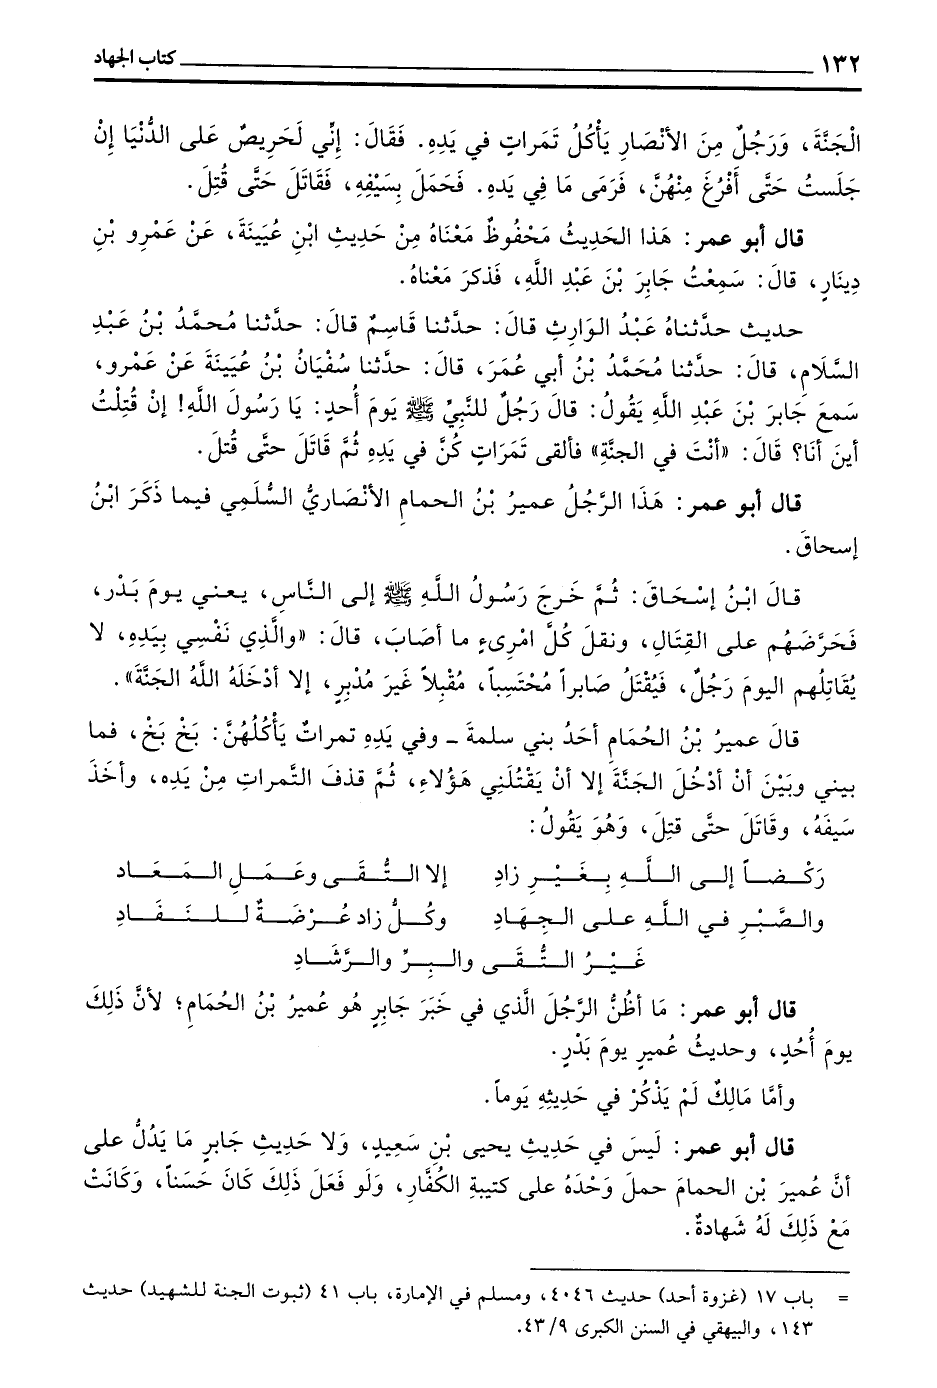 ١٣٢ كتاب الجهاد
الْجَنَّةَ، وَرَجُلٌ مِنَ الأنْصَارِ يَأْكُلُ تَمَراتٍ في يَدِهِ. فَقَالَ: إنِّي لَحَرِيصٌ عَلى الدُّنْيَا إن
جَلَستُ حَتَّى أَفْرُغَ مِنْهُنَّ، فَرَمَى مَا فِي يَدهِ. فَحَمَلَ بِسَيْفِهِ، فَقَاتَلَ حَتَّى قُتِلَ.
قال أبو عمر: هَذا الحَدِيثُ مَحْفُوظٌ مَعْنَاهُ مِنْ حَدِيثِ ابْنِ عُيَيْنَةَ، عَنْ عَمْرِو بْنِ
دِينَارٍ، قالَ: سَمِعْتُ جَابِرَ بْنَ عَبْدِ اللَّهِ، فَذكرَ مَعْناهُ.
حديث حدَّثناهُ عَبْدُ الوَارِثِ قالَ: حدَّثنا قَاسِمٌ قالَ: حدَّثنا مُحمَّدُ بْنُ عَبْدِ
السَّلَامِ، قالَ: حدَّثنا مُحَمَّدُ بْنُ أبي عُمَرَ، قالَ: حدَّثنا سُفْيَانُ بْنُ عُيَيْنَةَ عَنْ عَمْرو،
سَمعَ جَابِرَ بْنَ عَبْدِ اللَّهِ يَقُولُ: قالَ رَجُلٌ للنَّبيِّ ﷺ يَومَ أُحدٍ: يا رَسُولَ اللَّهِ! إنْ قُتِلْتُ
أينَ أنَا؟ قَالَ: «أنْتَ في الجنَّةِ» فألقى تَمَرَاتٍ كُنَّ في يَدِهِ ثُمَّ قَاتَلَ حتَّى قُتلَ.
قال أبو عمر: هَذَا الرَّجُلُ عميرُ بْنُ الحمامِ الأنْصَاريُّ السُّلَمِي فيما ذَكَرَ ابْنُ
إسحاقَ.
قالَ ابْنُ إسْحَاقَ: ثُمَّ خَرجَ رَسُولُ اللَّهِ ﷺ إلى النَّاسِ، يعني يومَ بَدْر،
فَحَرَّضَهُم على القِتَالِ، ونقلَ كُلَّ امْرِىءٍ ما أصَابَ، قالَ: «والَّذِي نَفْسِي بِيَدِهِ، لا
يُقَاتِلُهم اليومَ رَجُلٌ، فَيُقْتَلُ صَابراً مُحْتَسِباً، مُقْبِلاً غَيرَ مُدْبِرٍ، إلا أدْخَلَهُ اللَّهُ الجَنَّةَ».
قالَ عميرُ بْنُ الحُمَامِ أحَدُ بني سلمةَ - وفي يَدِهِ تمراتٌ يَأْكُلُهُنَّ: بَخْ بَخْ، فما
بيني وبَيْنَ أنْ أدْخُلَ الجَنَّةَ إلا أنْ يَقْتُلَني هَؤُلاءِ، ثُمَّ قذفَ التَّمراتِ مِنْ يَدِه، وأخَذَ
سَيفَهُ، وقَاتَلَ حتَّى قتِلَ، وَهُوَ يَقُولُ:
رَكْضاً إلى اللَّهِ بِغَيْرِ زادِ إلا التُّقَى وعَمَلِ المَعَاد
والصَّبْرِ في اللَّهِ على الجِهَادِ وكُلُّ زاد عُرْضَةٌ للنَفَادِ
غَيْرُ التُّقَى والبِرِّ والرَّشَادِ
قال أبو عمر: مَا أظُنُّ الرَّجُلَ الَّذي في خَبَرَ جَابِرٍ هُو عُميرُ بْنُ الحُمَامِ؛ لأنَّ ذَلِكَ
يومَ أُحُدٍ، وحديثُ عُميرٍ يومَ بَدْرٍ.
وأمَّا مَالِكٌ لَمْ يَذْكُرْ في حَدِيثِهِ يَوماً.
قال أبو عمر: لَيسَ في حَدِيثِ يحيى بْنِ سَعِيدٍ، وَلا حَدِيثِ جَابرٍ مَا يَدُلُّ على
أنَّ عُميرَ بْن الحمامَ حملَ وَحْدَهُ على كتيبةِ الكُفَّارِ، وَلَو فَعَلَ ذَلِكَ كَانَ حَسَناً، وَكَانَتْ
مَعْ ذَلِكَ لَهُ شَهادةٌ.
= باب ١٧ (غزوة أحد) حديث ٤٠٤٦، ومسلم في الإمارة، باب ٤١ (ثبوت الجنة للشهيد) حديث
١٤٣، والبيهقي في السنن الكبرى ٤٣/٩.